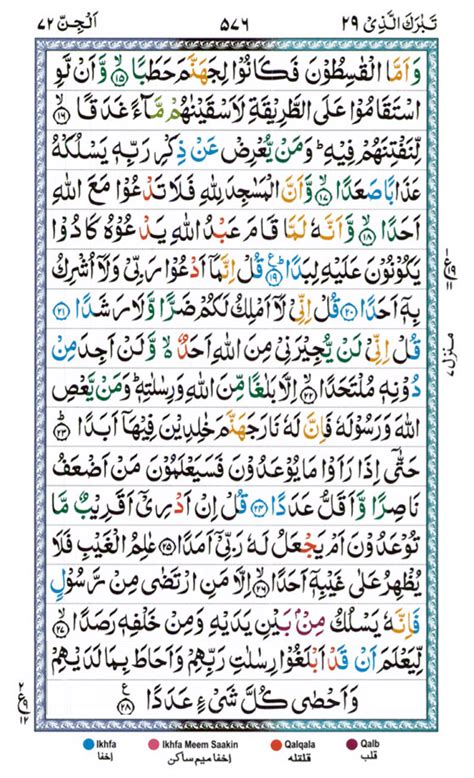 تَبٰرَكَ الَّذِیْ ٢٩
٥٧٦
اَلْجِنّ ٧٢
وَاَمَّا الْقٰسِطُوْنَ فَكَانُوْا لِجَهَنَّمَ حَطَبًا ۙ﴿١٥﴾ وَّاَنْ لَّوِ
اسْتَقَامُوْا عَلَی الطَّرِیْقَةِ لَاَسْقَیْنٰهُمْ مَّآءً غَدَقًا ۙ﴿١٦﴾
لِّنَفْتِنَهُمْ فِیْهِ ؕ وَمَنْ یُّعْرِضْ عَنْ ذِكْرِ رَبِّهٖ یَسْلُكْهُ
عَذَابًا صَعَدًا ۙ﴿١٧﴾ وَّاَنَّ الْمَسٰجِدَ لِلّٰهِ فَلَا تَدْعُوْا مَعَ اللّٰهِ
اَحَدًا ۙ﴿١٨﴾ وَّاَنَّهٗ لَمَّا قَامَ عَبْدُ اللّٰهِ یَدْعُوْهُ كَادُوْا
یَكُوْنُوْنَ عَلَیْهِ لِبَدًا ؕ﴿١٩﴾ قُلْ اِنَّمَاۤ اَدْعُوْا رَبِّیْ وَلَاۤ اُشْرِكُ
بِهٖۤ اَحَدًا ﴿٢٠﴾ قُلْ اِنِّیْ لَاۤ اَمْلِكُ لَكُمْ ضَرًّا وَّلَا رَشَدًا ﴿٢١﴾
قُلْ اِنِّیْ لَنْ یُّجِیْرَنِیْ مِنَ اللّٰهِ اَحَدٌ ۙ۬ وَّلَنْ اَجِدَ مِنْ
دُوْنِهٖ مُلْتَحَدًا ۙ﴿٢٢﴾ اِلَّا بَلٰغًا مِّنَ اللّٰهِ وَرِسٰلٰتِهٖ ؕ وَمَنْ یَّعْصِ
اللّٰهَ وَرَسُوْلَهٗ فَاِنَّ لَهٗ نَارَ جَهَنَّمَ خٰلِدِیْنَ فِیْهَاۤ اَبَدًا ؕ﴿٢٣﴾
حَتّٰۤی اِذَا رَاَوْا مَا یُوْعَدُوْنَ فَسَیَعْلَمُوْنَ مَنْ اَضْعَفُ
نَاصِرًا وَّاَقَلُّ عَدَدًا ﴿٢٤﴾ قُلْ اِنْ اَدْرِیْۤ اَقَرِیْبٌ مَّا
تُوْعَدُوْنَ اَمْ یَجْعَلُ لَهٗ رَبِّیْۤ اَمَدًا ﴿٢٥﴾ عٰلِمُ الْغَیْبِ فَلَا
یُظْهِرُ عَلٰی غَیْبِهٖۤ اَحَدًا ۙ﴿٢٦﴾ اِلَّا مَنِ ارْتَضٰی مِنْ رَّسُوْلٍ
فَاِنَّهٗ یَسْلُكُ مِنْۢ بَیْنِ یَدَیْهِ وَمِنْ خَلْفِهٖ رَصَدًا ۙ﴿٢٧﴾
لِّیَعْلَمَ اَنْ قَدْ اَبْلَغُوْا رِسٰلٰتِ رَبِّهِمْ وَاَحَاطَ بِمَا لَدَیْهِمْ
وَاَحْصٰی كُلَّ شَیْءٍ عَدَدًا ﴿٢٨﴾ ع
ع ١١
منزل ٧
٢ ع ١٢
Ikhfa اخفا
Ikhfa Meem Saakin اخفا میم ساکن
Qalqala قلقله
Qalb قلب